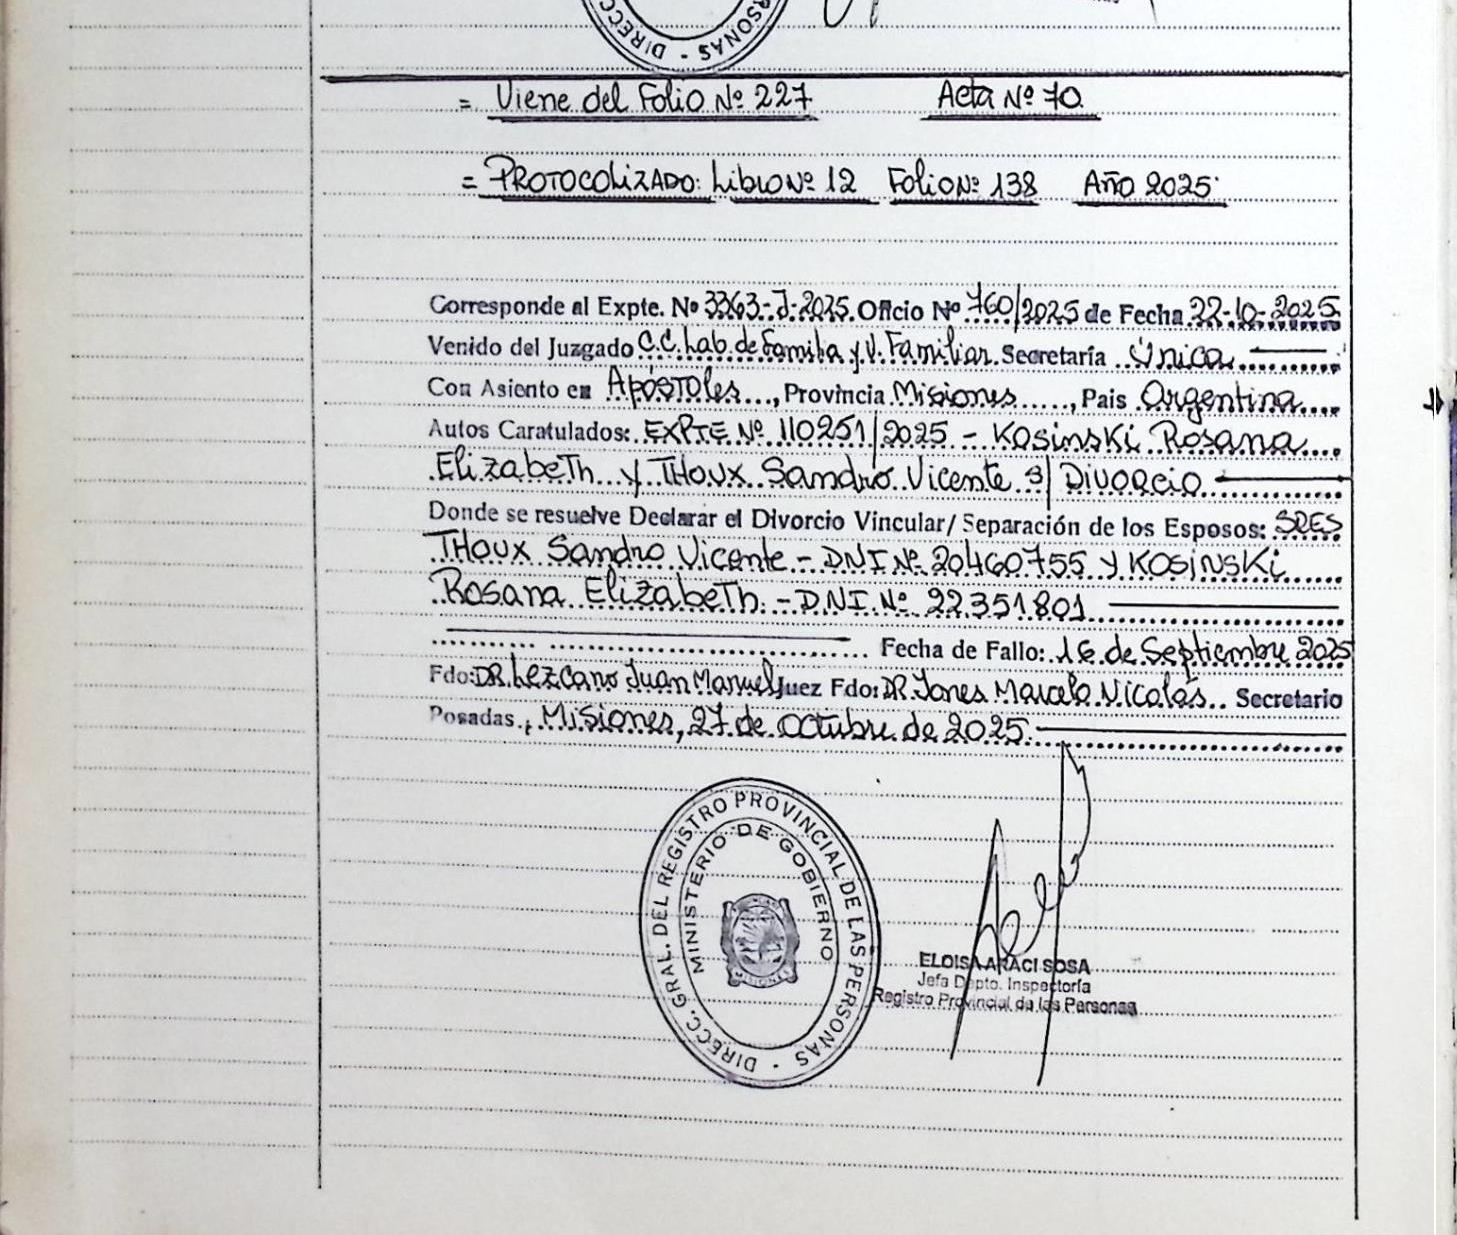 DIRECC PERSONAS
= Viene del Folio Nº 227 Acta Nº 70
= PROTOCOLIZADO: Libro Nº 12 Folio Nº 138 Año 2025
Corresponde al Expte. Nº 3363-J-2025 Oficio Nº 760/2025 de Fecha 22-10-2025
Venido del Juzgado C.C. Lab. de Familia y V. Familiar Secretaría Única
Con Asiento en Apóstoles, Provincia Misiones, Pais Argentina
Autos Caratulados: EXPTE Nº 110251/2025 - Kosinski Rosana
Elizabeth y THoux Sandro Vicente s/ Divorcio
Donde se resuelve Declarar el Divorcio Vincular/ Separación de los Esposos: SRES
THoux Sandro Vicente - DNI Nº 20460755 y Kosinski
Rosana Elizabeth - D.N.I. Nº 22.351.801
Fecha de Fallo: 16 de Septiembre 2025
Fdo: DR. Lezcano Juan Manuel Juez Fdo: DR. Jones Marcelo Nicolás Secretario
Posadas, Misiones, 27 de octubre de 2025
DIRECC. GRAL. DEL REGISTRO PROVINCIAL DE LAS PERSONAS
MINISTERIO DE GOBIERNO
MISIONES
ELOISA ARACI SOSA
Jefa Depto. Inspectoría
Registro Provincial de las Personas